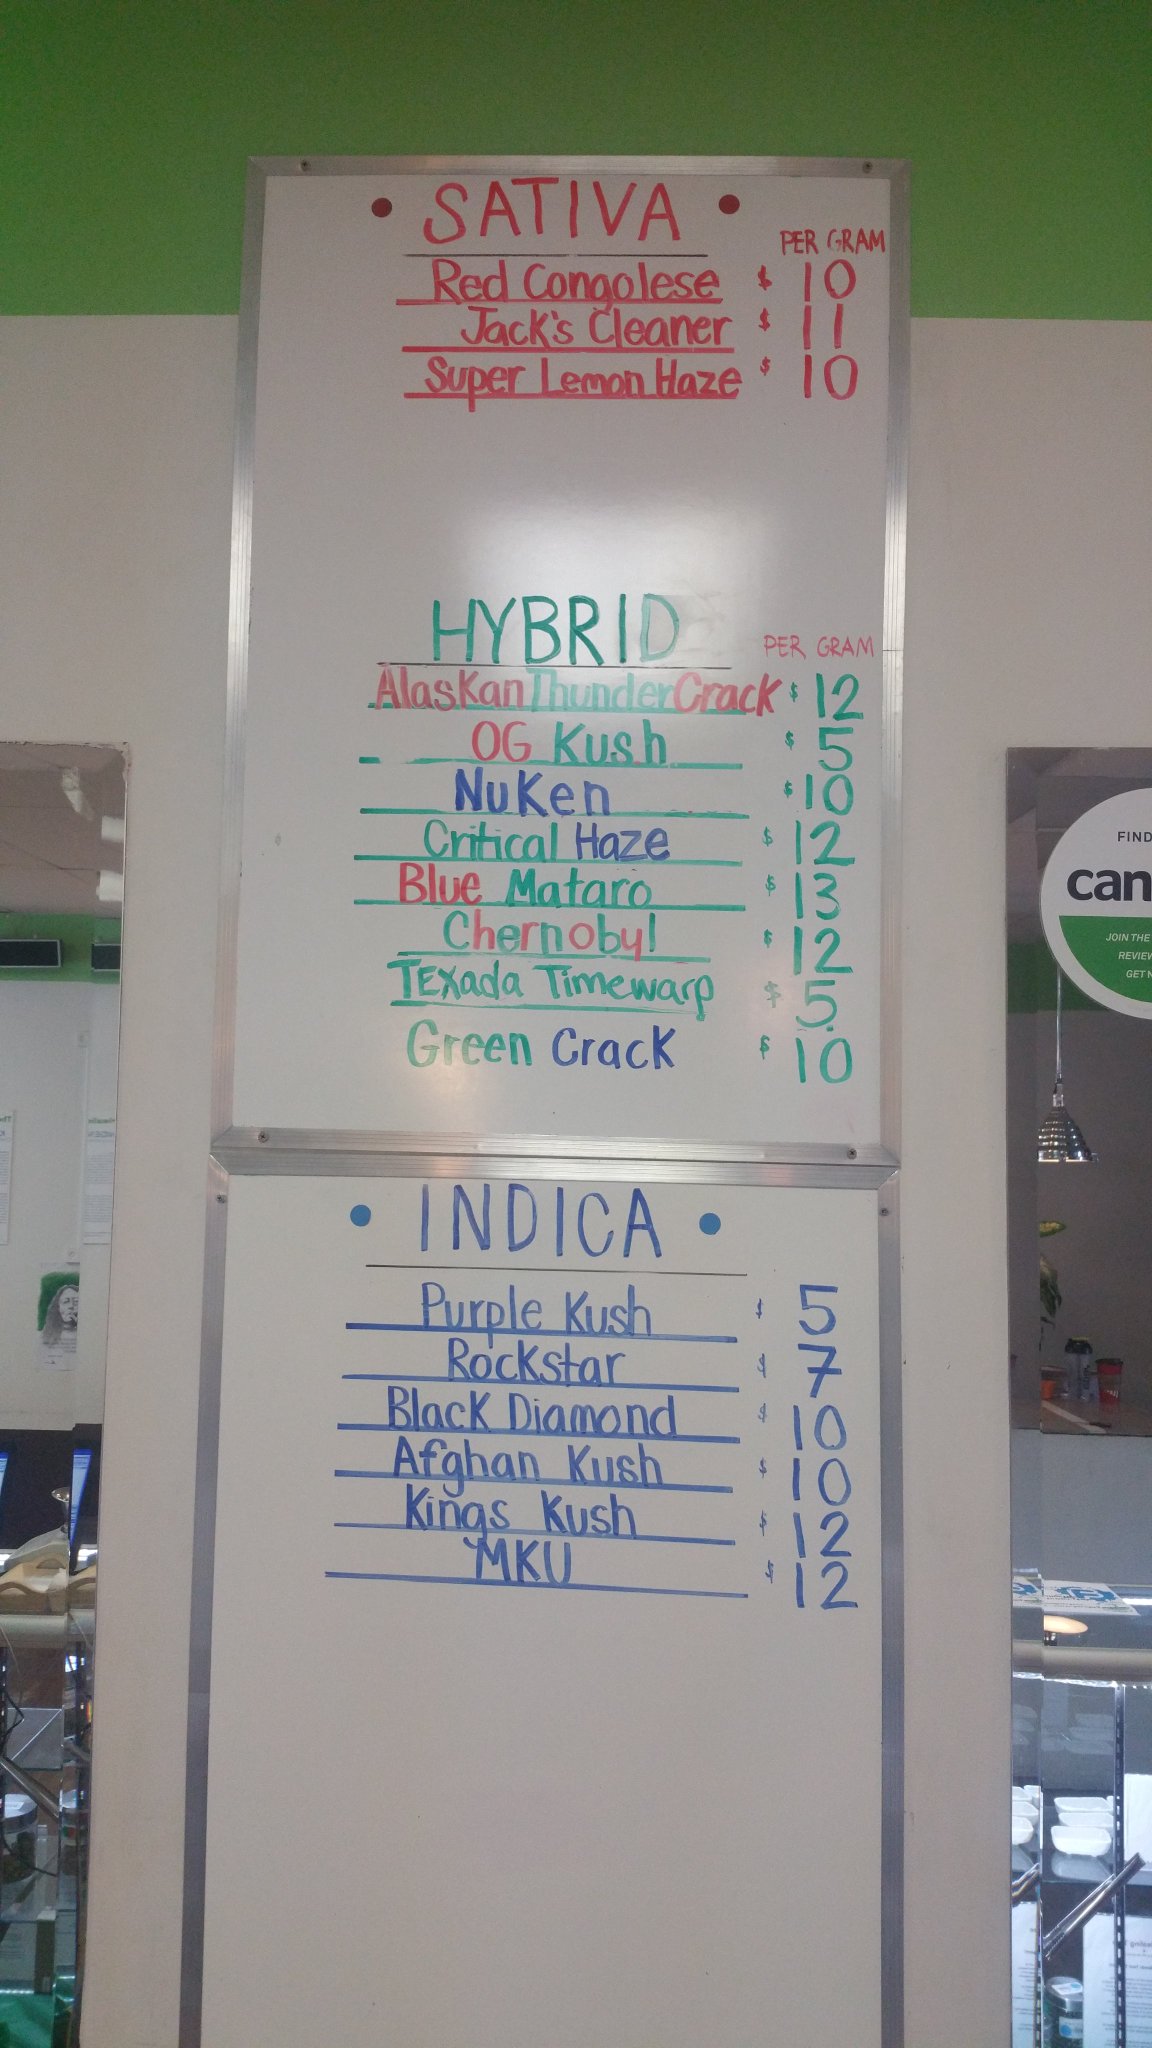 SATIVA
PER GRAM
Red Congolese $ 10
Jack's Cleaner $ 11
Super Lemon Haze $ 10
HYBRID
PER GRAM
Alaskan Thunder Crack $ 12
OG Kush $ 5
NuKen $ 10
Critical Haze $ 12
Blue Mataro $ 13
Chernobyl $ 12
TExada Timewarp $ 5
Green Crack $ 10
INDICA
Purple Kush $ 5
Rockstar $ 7
Black Diamond $ 10
Afghan Kush $ 10
Kings Kush $ 12
MKU $ 12
FIND
can
JOIN THE
REVIEW
GET